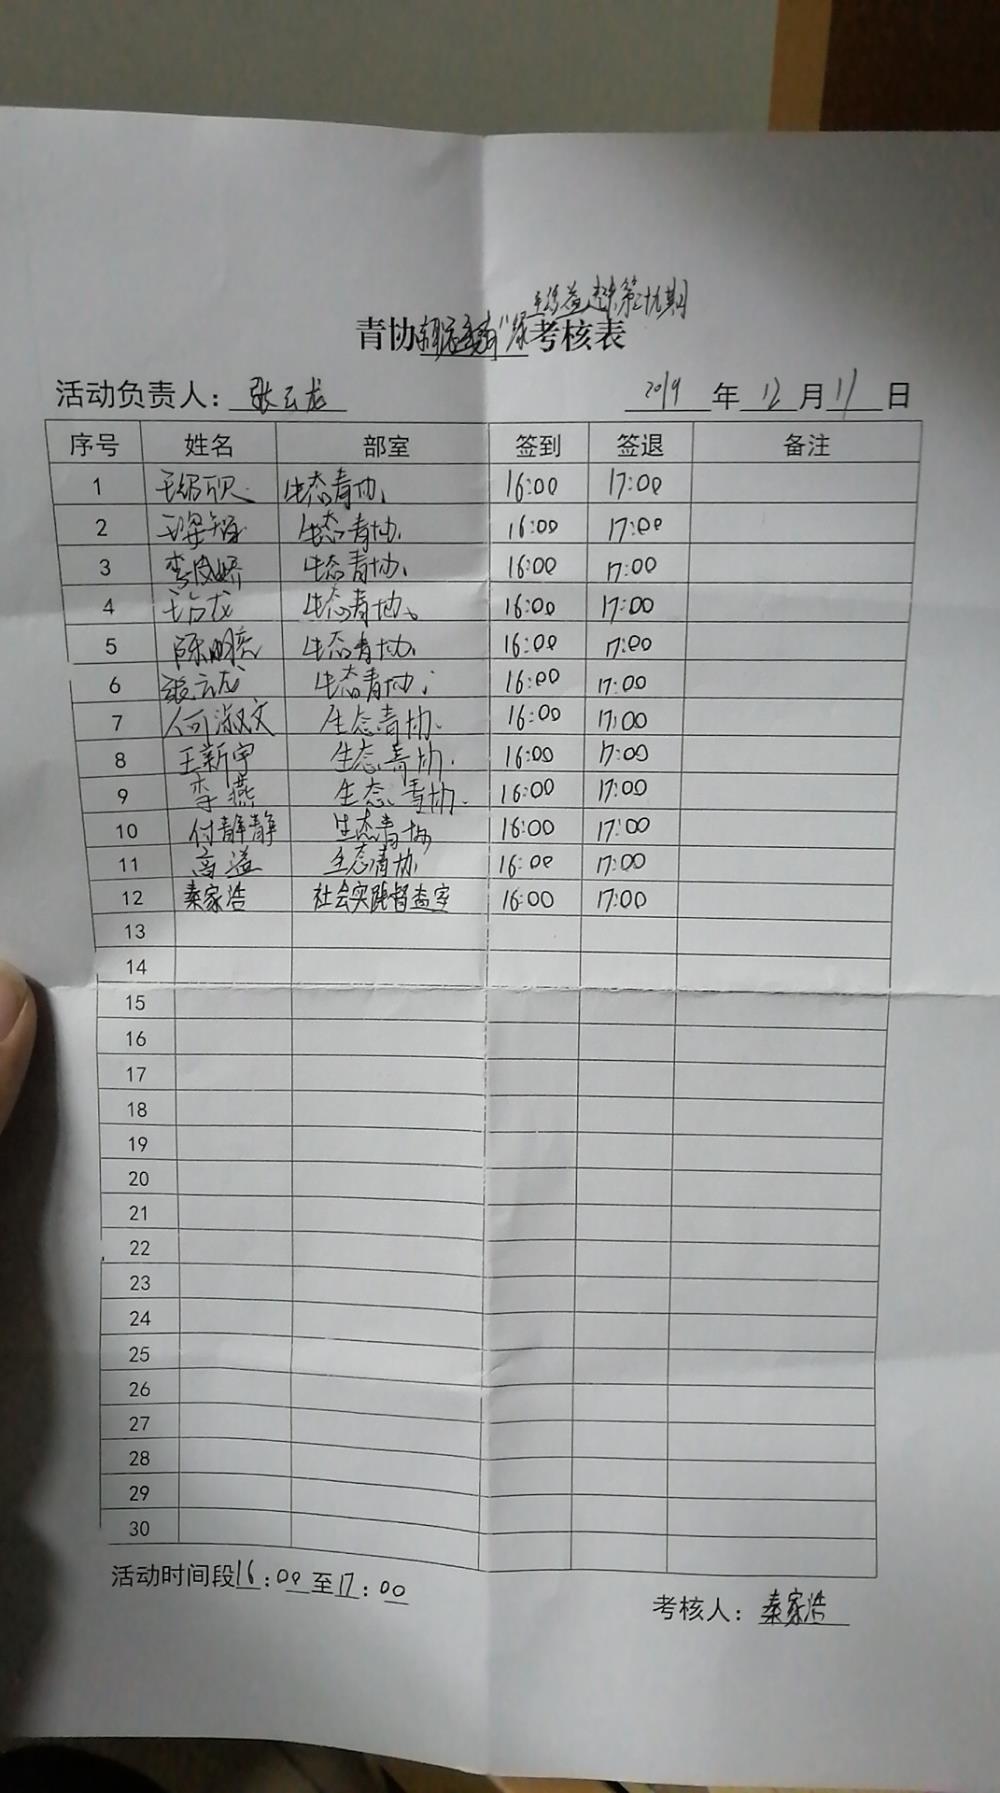 青协 考核表
活动负责人：张云龙 2019年12月11日
序号 姓名 部室 签到 签退 备注
1 生态青协 16:00 17:00
2 生态青协 16:00 17:00
3 生态青协 16:00 17:00
4 生态青协 16:00 17:00
5 陈明亮 生态青协 16:00 17:00
6 张云龙 生态青协 16:00 17:00
7 何淑文 生态青协 16:00 17:00
8 王新宇 生态青协 16:00 17:00
9 李燕 生态青协 16:00 17:00
10 付静静 生态青协 16:00 17:00
11 高溢 生态青协 16:00 17:00
12 秦家浩 社会实践督查室 16:00 17:00
13
14
15
16
17
18
19
20
21
22
23
24
25
26
27
28
29
30
活动时间段16:00至17:00
考核人：秦家浩